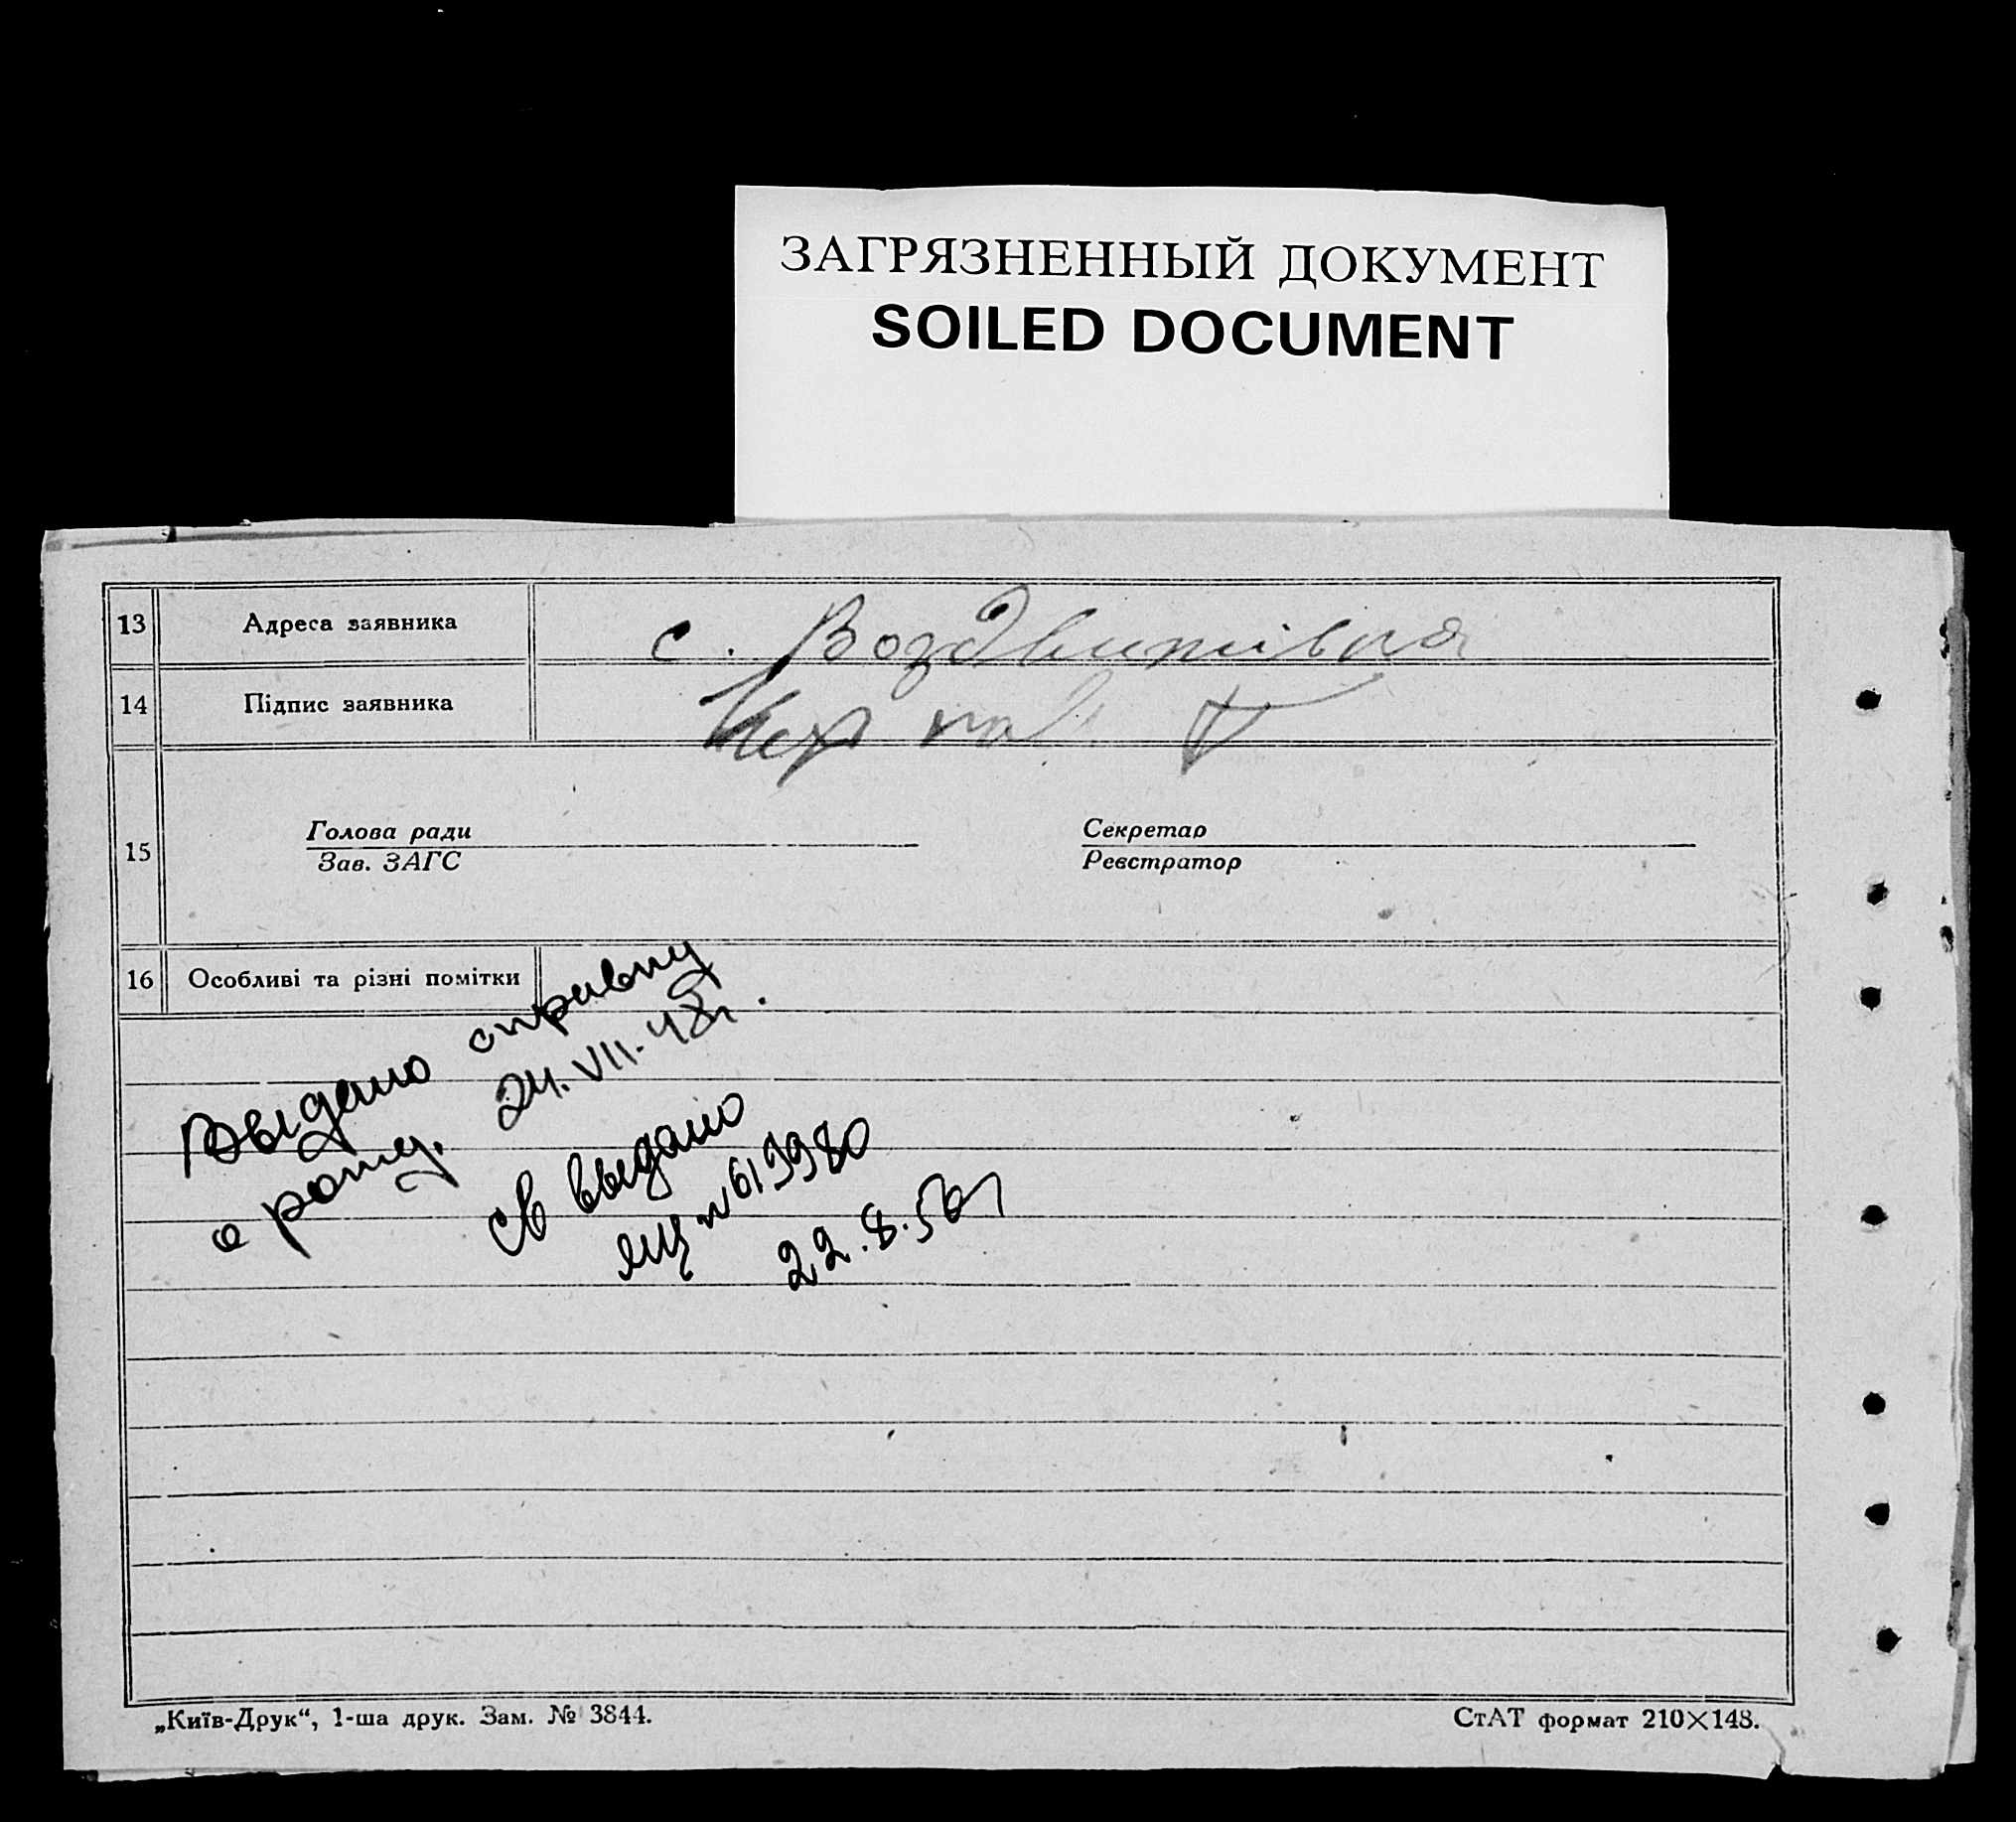 ЗАГРЯЗНЕННЫЙ ДОКУМЕНТ
SOILED DOCUMENT
13 Адреса заявника с. Воздвижівка
14 Підпис заявника
15 Голова ради Секретар
Зав. ЗАГС Реєстратор
16 Особливі та різні помітки
Выдано справку
о рожд. 24.VII.48г.
св выдано
№ 619980
22.8.50г
„Київ-Друк“, 1-ша друк. Зам. № 3844. СтАТ формат 210×148.